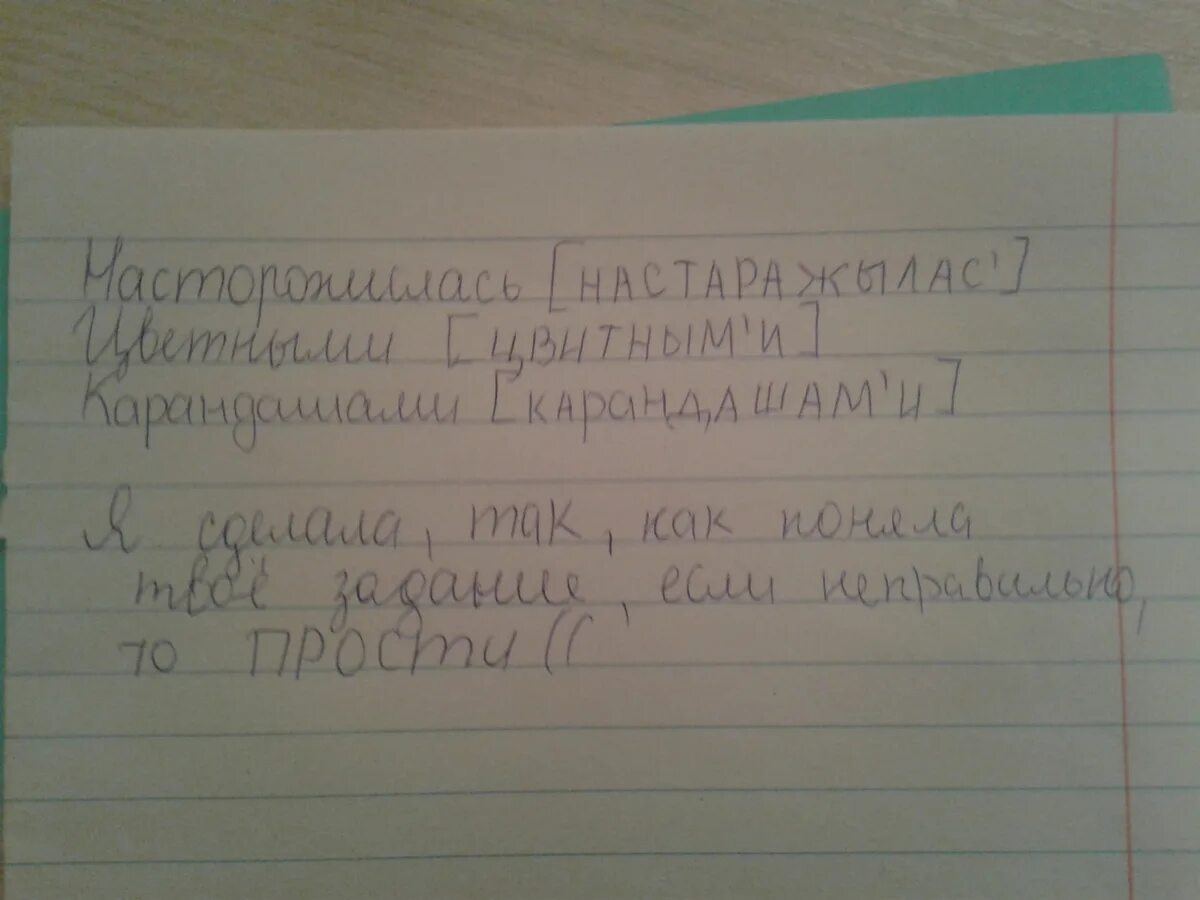 Насторожилась [НАСТАРАЖЫЛАС']
Цветными [ЦВИТНЫМ'И]
Карандашами [КАРАНДАШАМ'И]
Я сделала, так, как поняла
твоё задание, если неправильно,
то ПРОСТИ ((